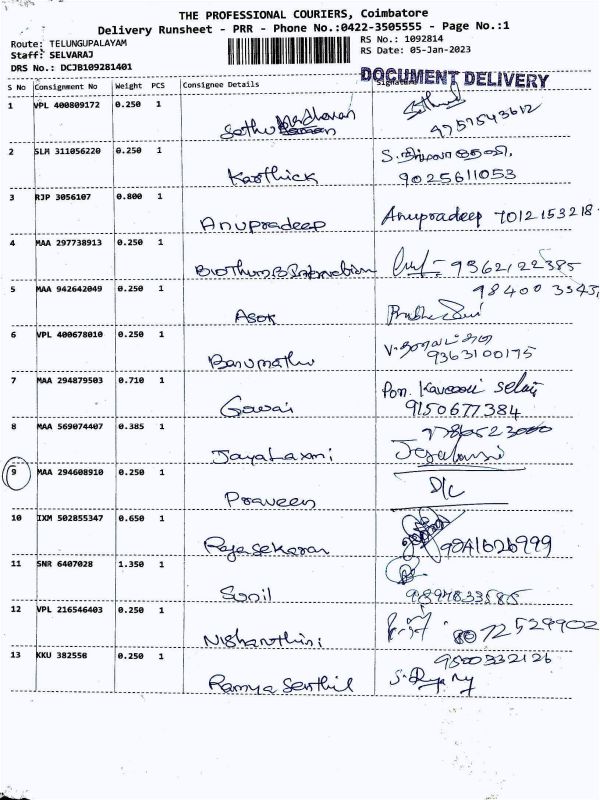 THE PROFESSIONAL COURIERS, Coimbatore
Delivery Runsheet - PRR - Phone No.:0422-3505555 - Page No.:1
Route: TELUNGUPALAYAM RS No.: 1092814
Staff: SELVARAJ RS Date: 05-Jan-2023
DRS No.: DCJB109281401
DOCUMENT DELIVERY
S No Consignment No Weight PCS Consignee Details Signature
1 VPL 400809172 0.250 1
4757543612
2 SLM 311056220 0.250 1 Karthick
9025611053
3 RJP 3056107 0.800 1 Anupradeep Anupradeep 7012153218
4 MAA 297738913 0.250 1 9362122385
5 MAA 942642049 0.250 1 Asok
6 VPL 400678010 0.250 1 Banumathi
9363100175
7 MAA 294879503 0.710 1 Pon.
9150677384
8 MAA 569074407 0.385 1 JayaLaxmi
9 MAA 294608910 0.250 1 Praveen D/C
10 IXM 502855347 0.650 1 Rajasekaran 9841626999
11 SNR 6407028 1.350 1 Sunil
12 VPL 216546403 0.250 1 Nishanthini
13 KKU 382558 0.250 1 9500332126
Ramya Senthil